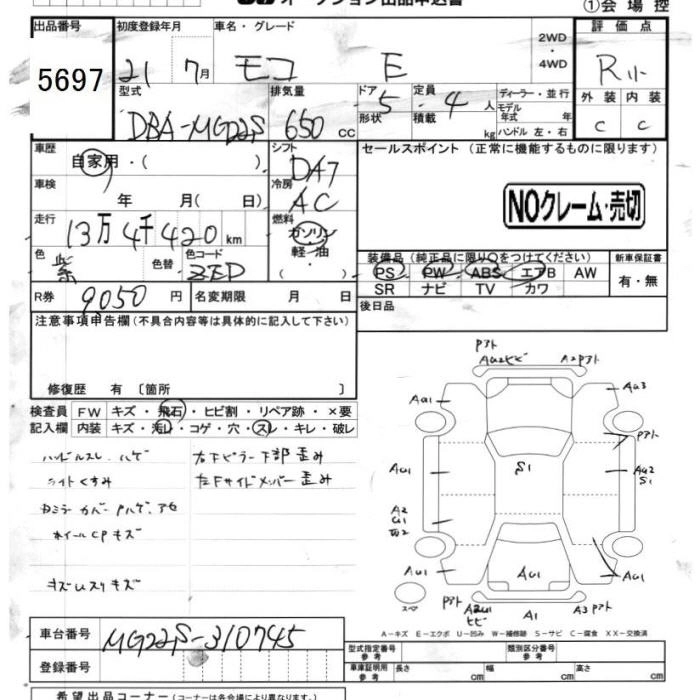 オークション出品申込書
①会場控
出品番号 初度登録年月 車名・グレード 評価点
5697 21 7月 モコ E 2WD・4WD R
型式 排気量 ドア形状 定員積載 ディーラー・並行 外装 内装
DBA-MG22S 650cc 5 4人 kg モデル年式 年 ハンドル 左・右 C C
車歴 シフト セールスポイント (正常に機能するものに限ります)
自家用・( ) DA7
車検 冷房
年 月( 日) AC NOクレーム・売切
走行 燃料
13万4千420km ガソリン・軽油・( )
色 色替 色コード 装備品(純正品に限り○をつけてください) 新車保証書
紫 ZED PS PW ABS エアB AW 有・無
SR ナビ TV カワ
R券 9050円 名変期限 月 日 後日品
注意事項申告欄(不具合内容等は具体的に記入して下さい)
修復歴 有〔箇所 〕
検査員記入欄 FW キズ・飛石・ヒビ割・リペア跡・×要
内装 キズ・汚レ・コゲ・穴・スレ・キレ・破レ
ハンドルスレ.ハゲ 右下ピラー下部歪み
ライトくすみ 左Fサイドメンバー歪み
ホイールCPキズ
Pアト
AU2ヒビ A2Pアト
AU1 AU3
Pアト
AU1 S1 AU2
S1
A2
U1
W2
AU1 AU1 AU1
スペア Pアト ヒビ A1 A3Pアト
A-キズ E-エクボ U-凹み W-補修跡 S-サビ C-腐食 XX-交換済
車台番号 MG22S-310745
登録番号
型式指定番号 参考 類別区分番号 参考
車庫証明用 参考 長さ cm 幅 cm 高さ cm
希望出品コーナー(コーナー名は各会場により異なります。)